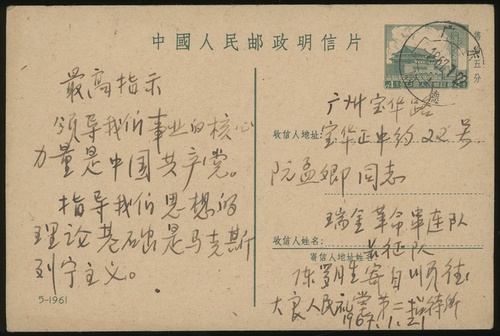 中國人民邮政明信片
售价五分
最高指示
领导我们事业的核心
力量是中国共产党。
指导我们思想的
理论基础是马克斯
列宁主义。
5-1961
广州宝华路
收信人地址:
宝华正中约22号
阮孟卿同志
瑞金革命串连队
收信人姓名:
长征队
寄信人地址姓名:
大良人民礼堂第二招待所
1967.1.21